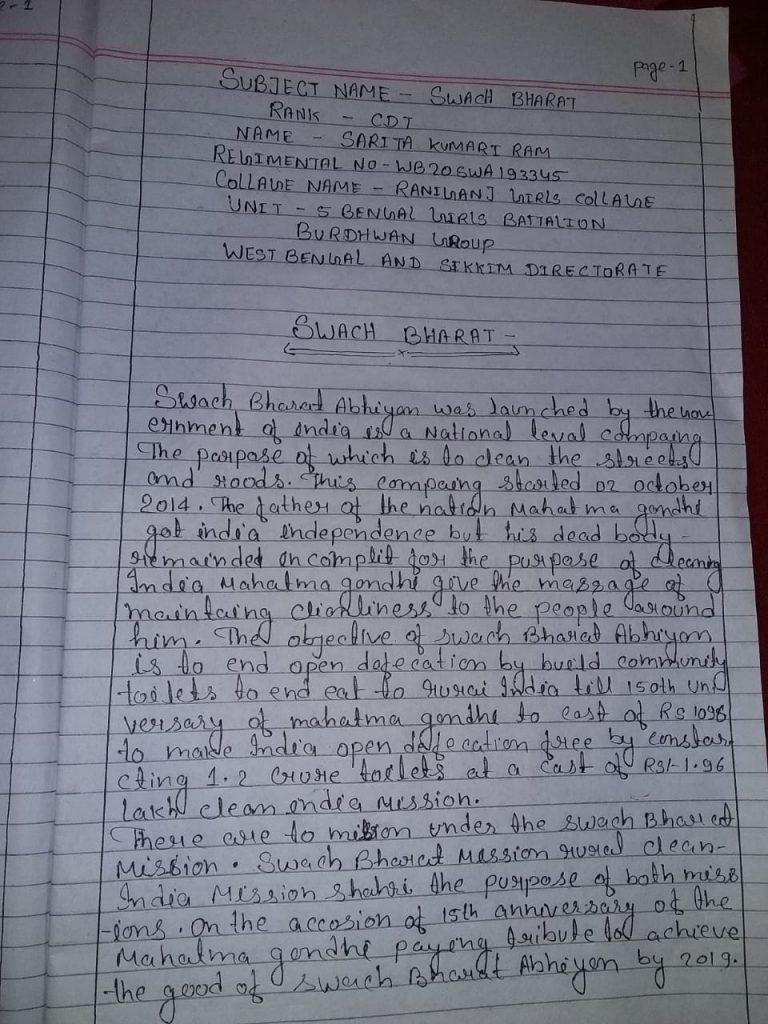 e-1
page-1
SUBJECT NAME - SWACH BHARAT
RANK - CDT
NAME - SARITA KUMARI RAM
REGIMENTAL NO - WB20SWA193345
COLLAGE NAME - RANIGANJ GIRLS COLLAGE
UNIT - 5 BENGAL GIRLS BATTALION
BURDHWAN GROUP
WEST BENGAL AND SIKKIM DIRECTORATE
SWACH BHARAT -
Swach Bharat Abhiyan was launched by the Gov
ernment of India is a National leval compaing
The parpase of which is to clean the streets
and roads. This compaing started 02 october
2014. The father of the nation Mahatma gandhi
got india independence but his dead body -
remainded incomplit for the purpose of cleaning
India Mahatma gandhi give the massage of
maintaing clionliness to the people around
him. The objective of swach Bharat Abhiyan
is to end open dafecation by build community
toilets to end eat to rurai India till 150th uni
versary of mahatma gandhi to cast of RS 1098
to make India open defecation free by constar
cting 1.2 crure toilets at a cast of RS/-1.96
lakh clean india Mission.
There are to mission under the swach Bharat
Mission. Swach Bharat Mession rural clean-
India Mission shahri the purpose of both miss
-ions. On the accosion of 15th anniversary of the
Mahatma gandhi payeng tribute to achieve
the good of swach Bharat Abhiyan by 2019.